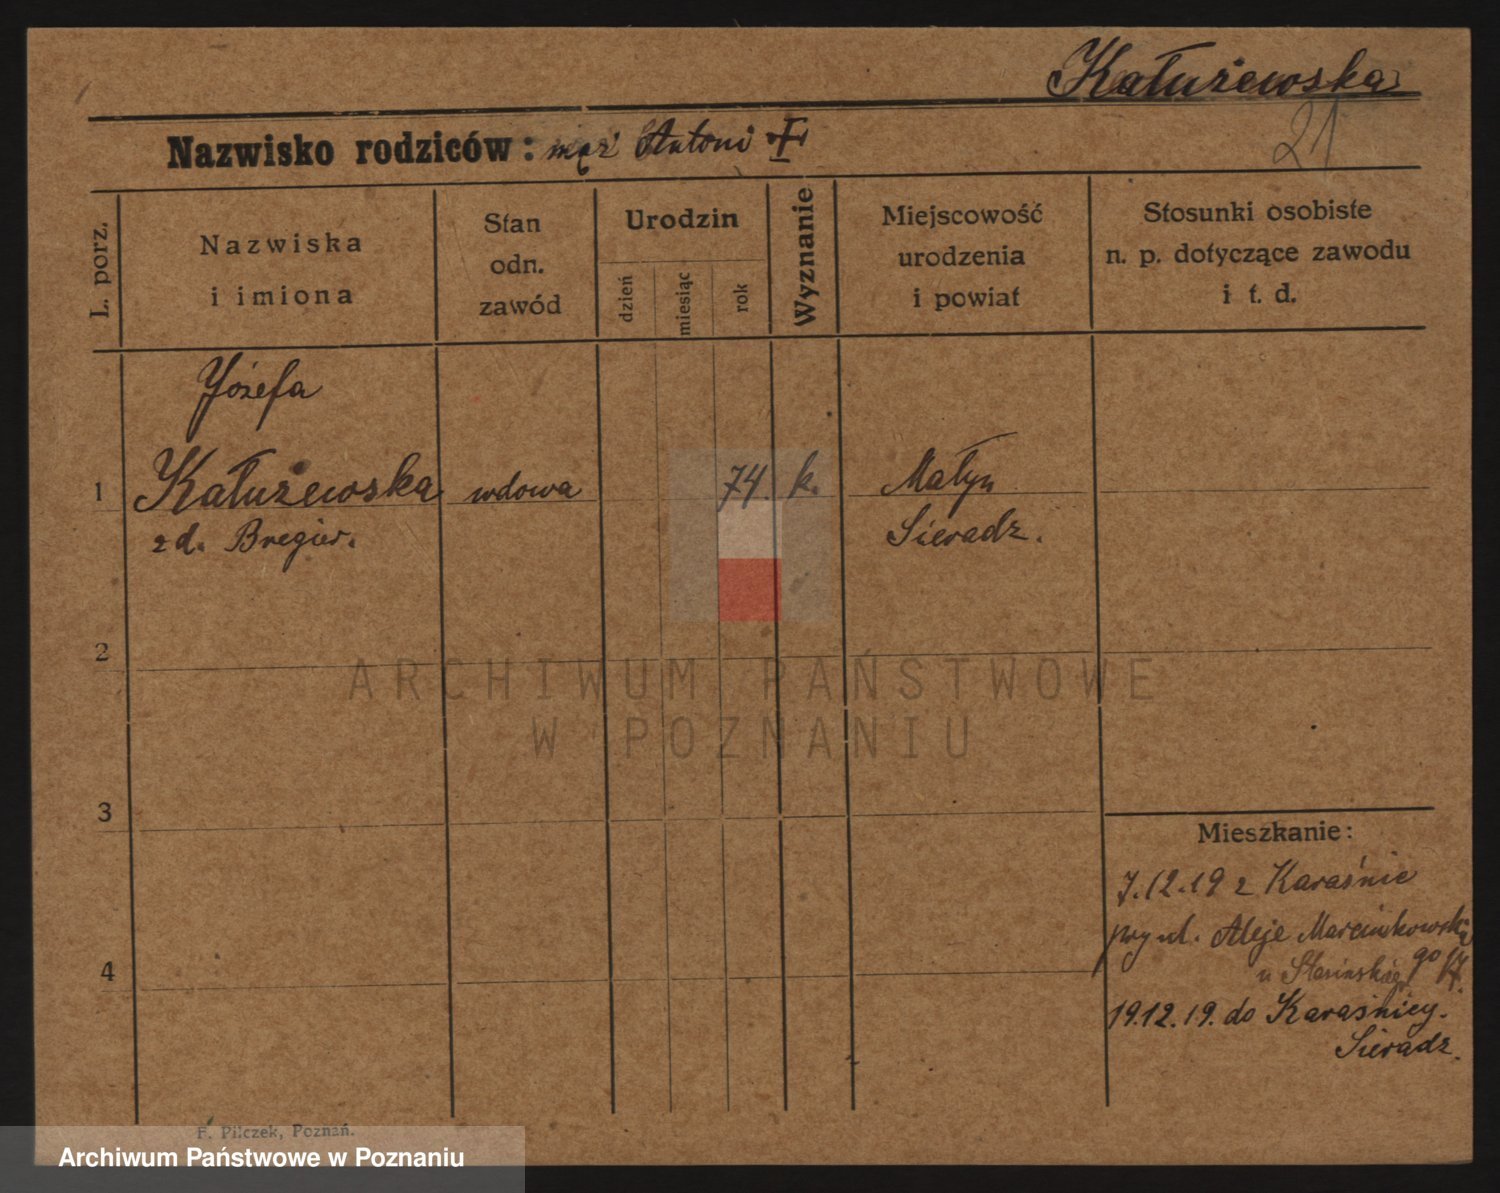 Kałużewska
21
Nazwisko rodziców: mąż Antoni
L. porz.
Nazwiska
i imiona
Stan
odn.
zawód
Urodzin
dzień
miesiąc
rok
Wyznanie
Miejscowość
urodzenia
i powiat
Stosunki osobiste
n. p. dotyczące zawodu
i t. d.
Józefa
1 Kałużewska wdowa 74 k. Małyn
z d. Bregier. Sieradz.
2
ARCHIWUM PAŃSTWOWE
W POZNANIU
3
Mieszkanie:
7.12.19 z Karaśnic
przy ul. Aleje Marcinkowskie
go 17.
4
19.12.19. do Karaśnicy.
Sieradz.
F. Pilczek, Poznań.
Archiwum Państwowe w Poznaniu